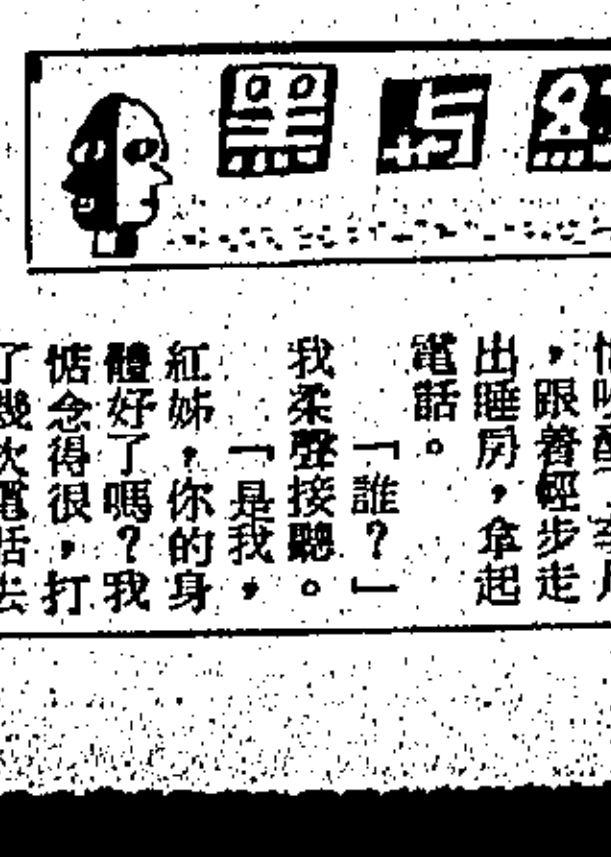 黑与紅
，跟着輕步走
出睡房，拿起
電話。
「誰？」
我柔聲接聽。
「是我，
紅姊，你的身
體好了嗎？我
惦念得很，打
了幾次電話去